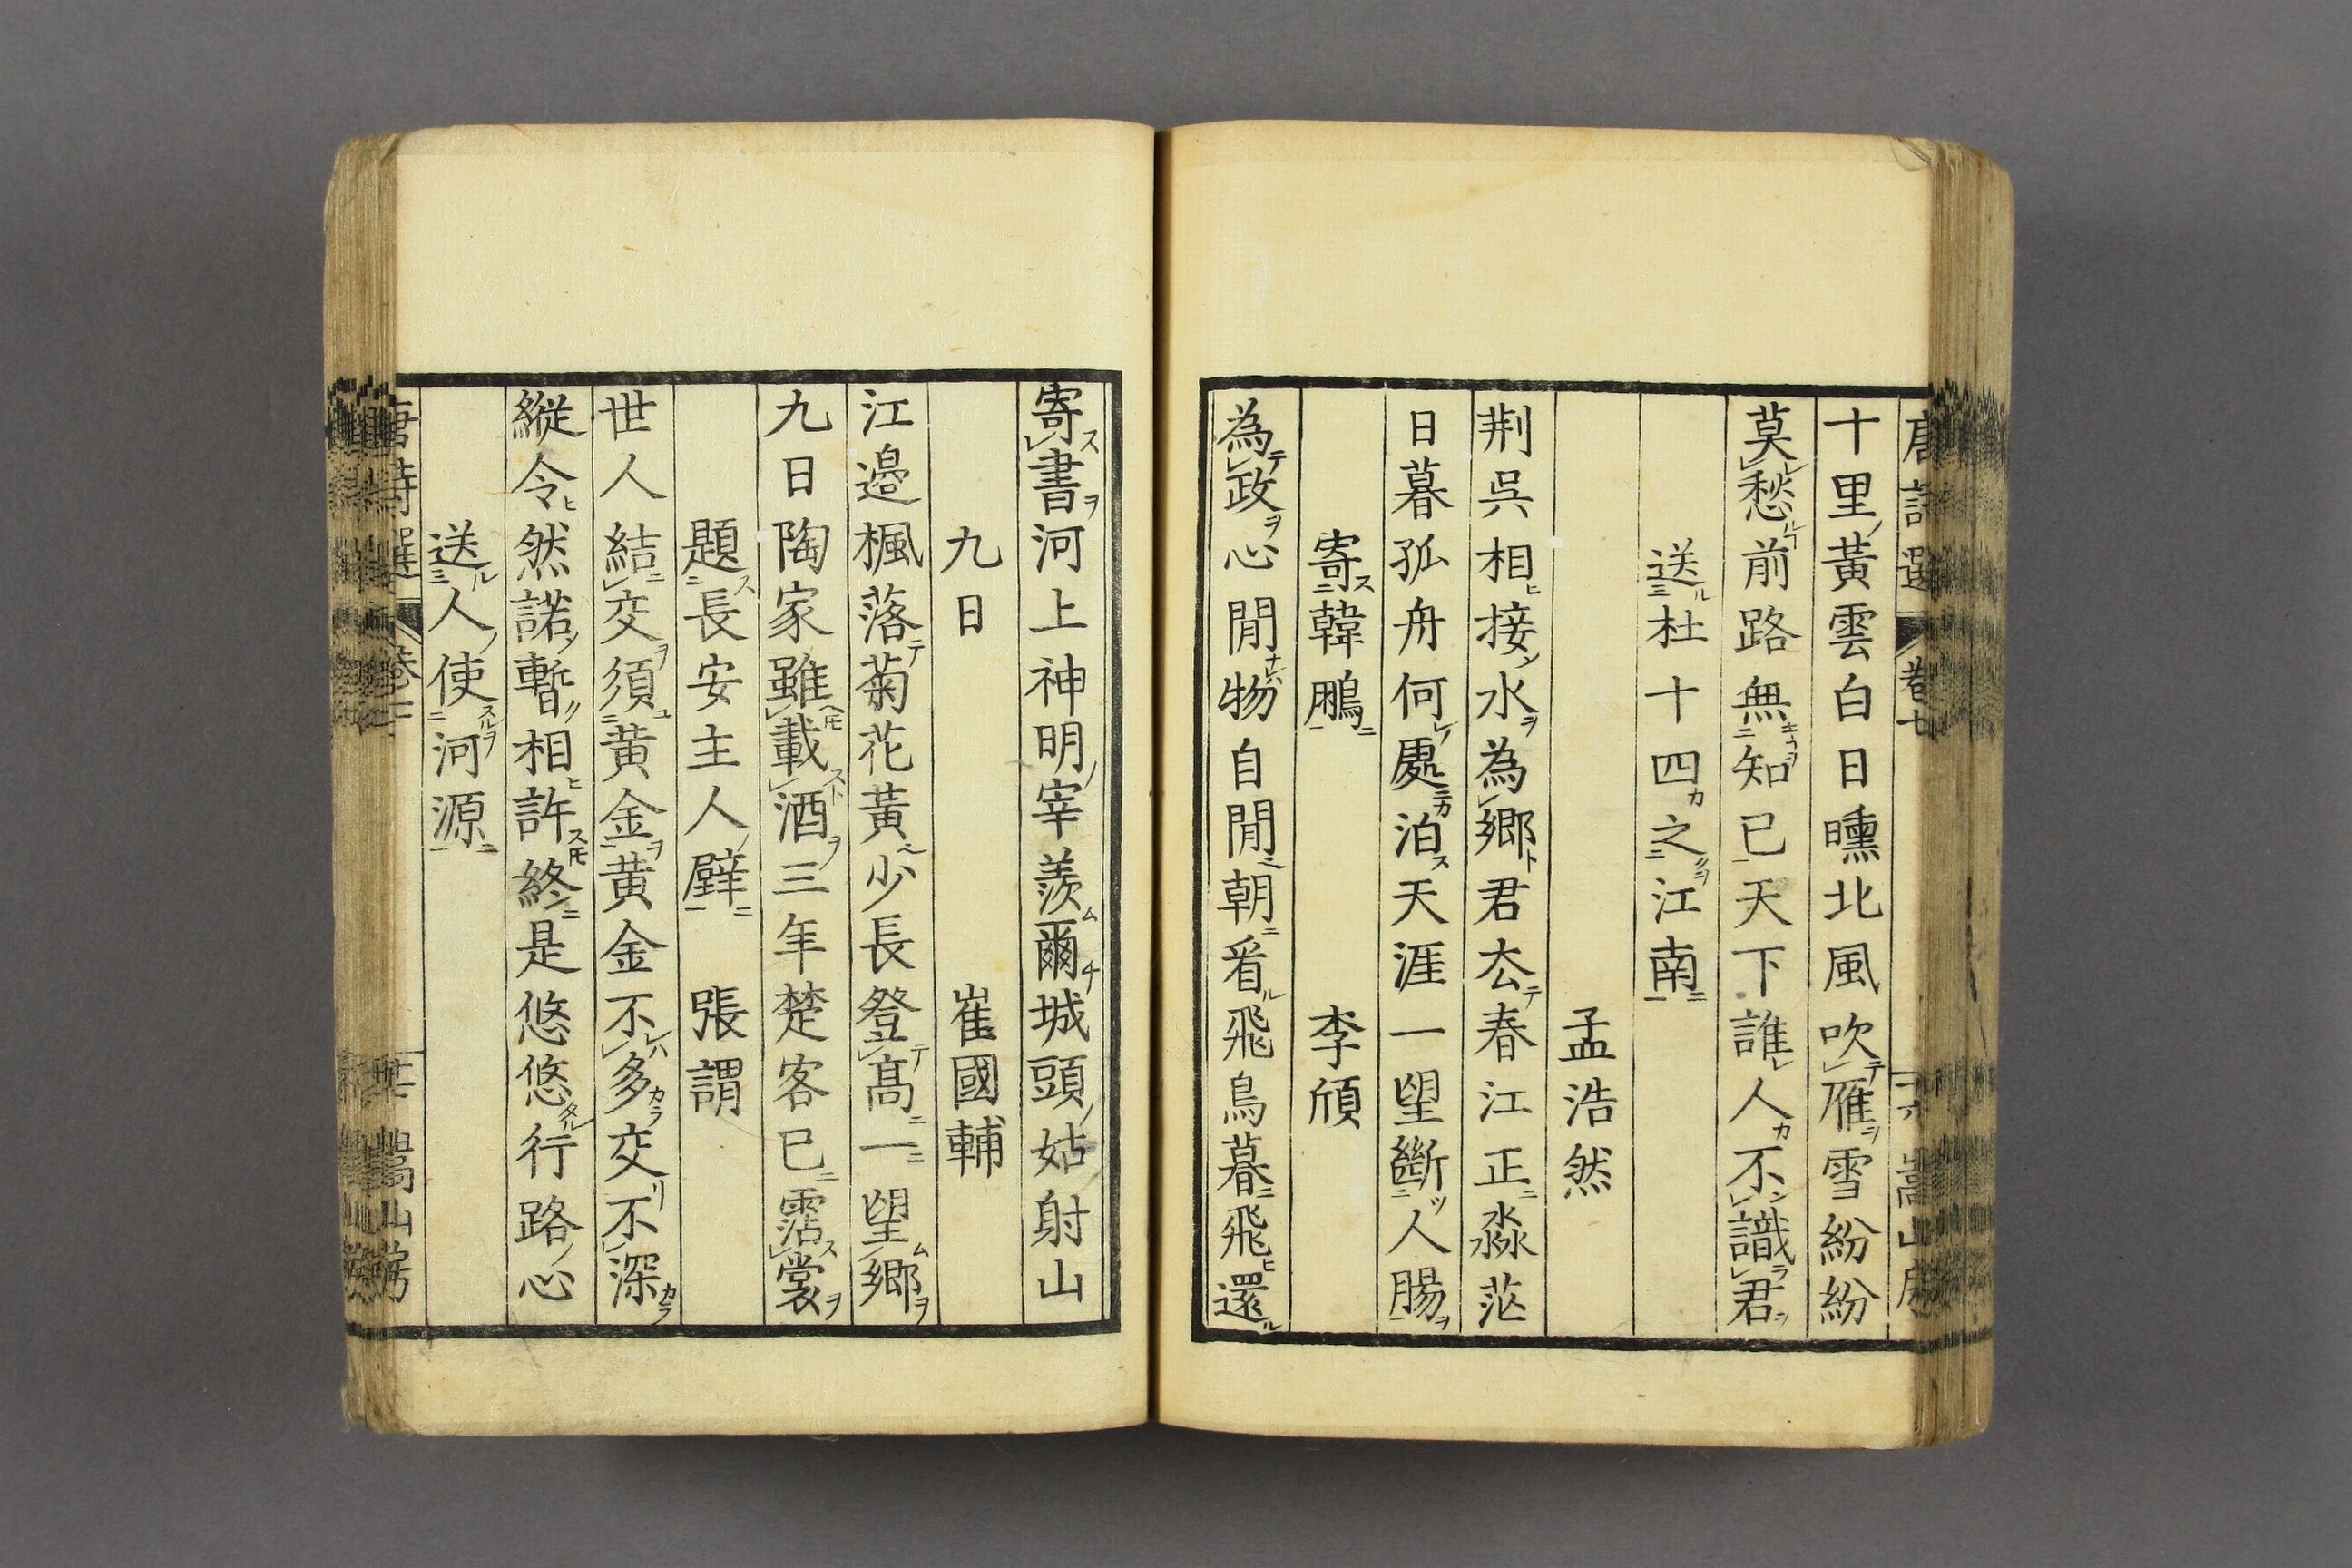 唐詩選 卷七 十六 嵩山房
十里黃雲白日曛北風吹雁雪紛紛
莫愁前路無知已天下誰人不識君
送杜十四之江南
孟浩然
荆吳相接水為鄉君厺春江正淼茫
日暮孤舟何處泊天涯一望斷人腸
寄韓鵬
李頎
為政心閒物自閒朝看飛鳥暮飛還
寄書河上神明宰羨爾城頭姑射山
九日
崔國輔
江邊楓落菊花黃少長登高一望鄉
九日陶家雖載酒三年楚客已霑裳
題長安主人壁
張謂
世人結交須黃金黃金不多交不深
縱令然諾暫相許終是悠悠行路心
送人使河源
唐詩選 嵩山房